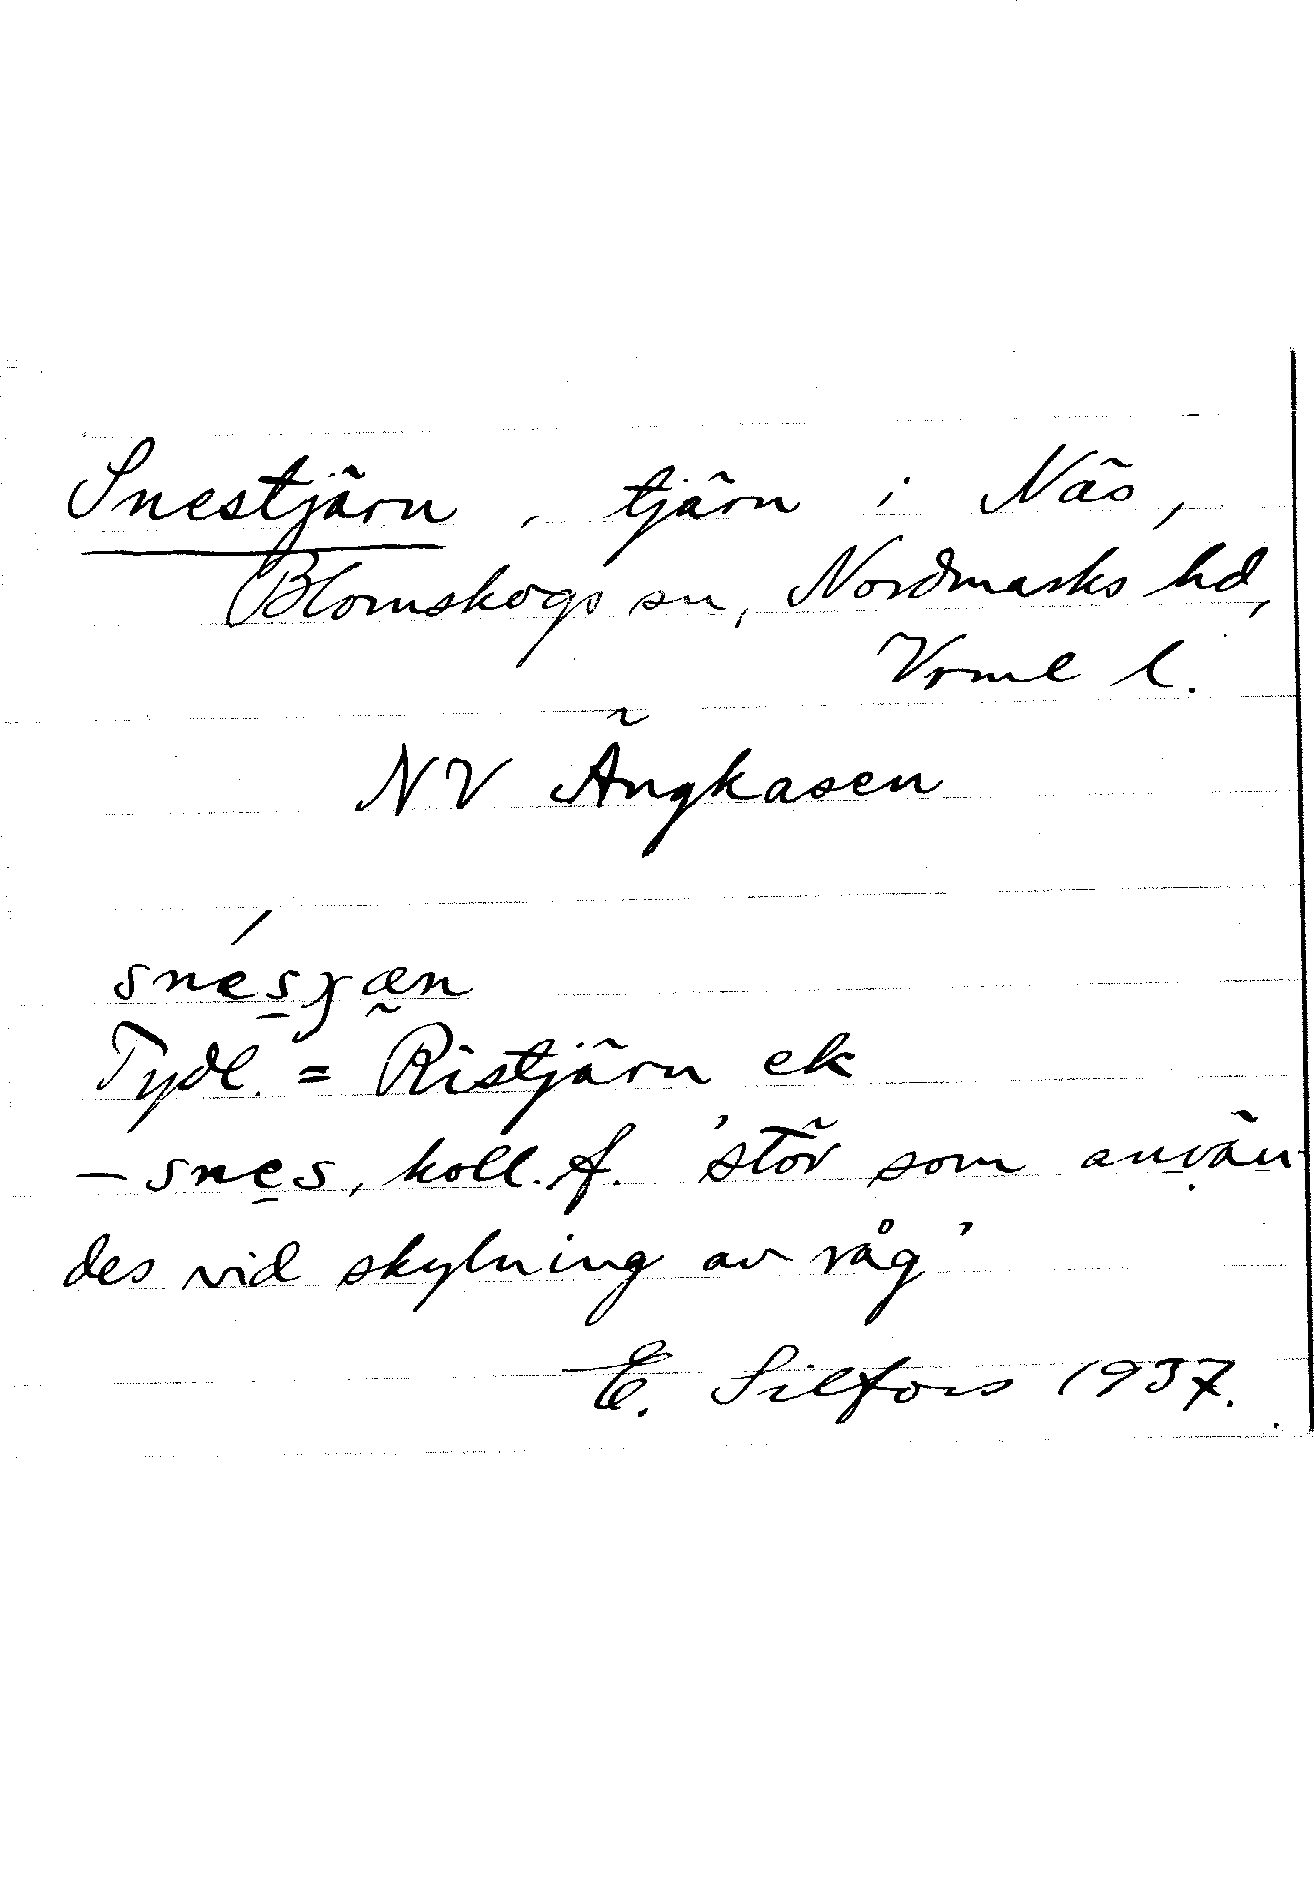 Snestjärn, tjärn i Näs,
Blomskogs sn, Nordmarks hd,
Vrml l.
NV Ängkasen
Tydl. = Ristjärn ek
– snes, koll. f. 'stör som använ-
des vid skylning av råg'
E. Silfors 1937.